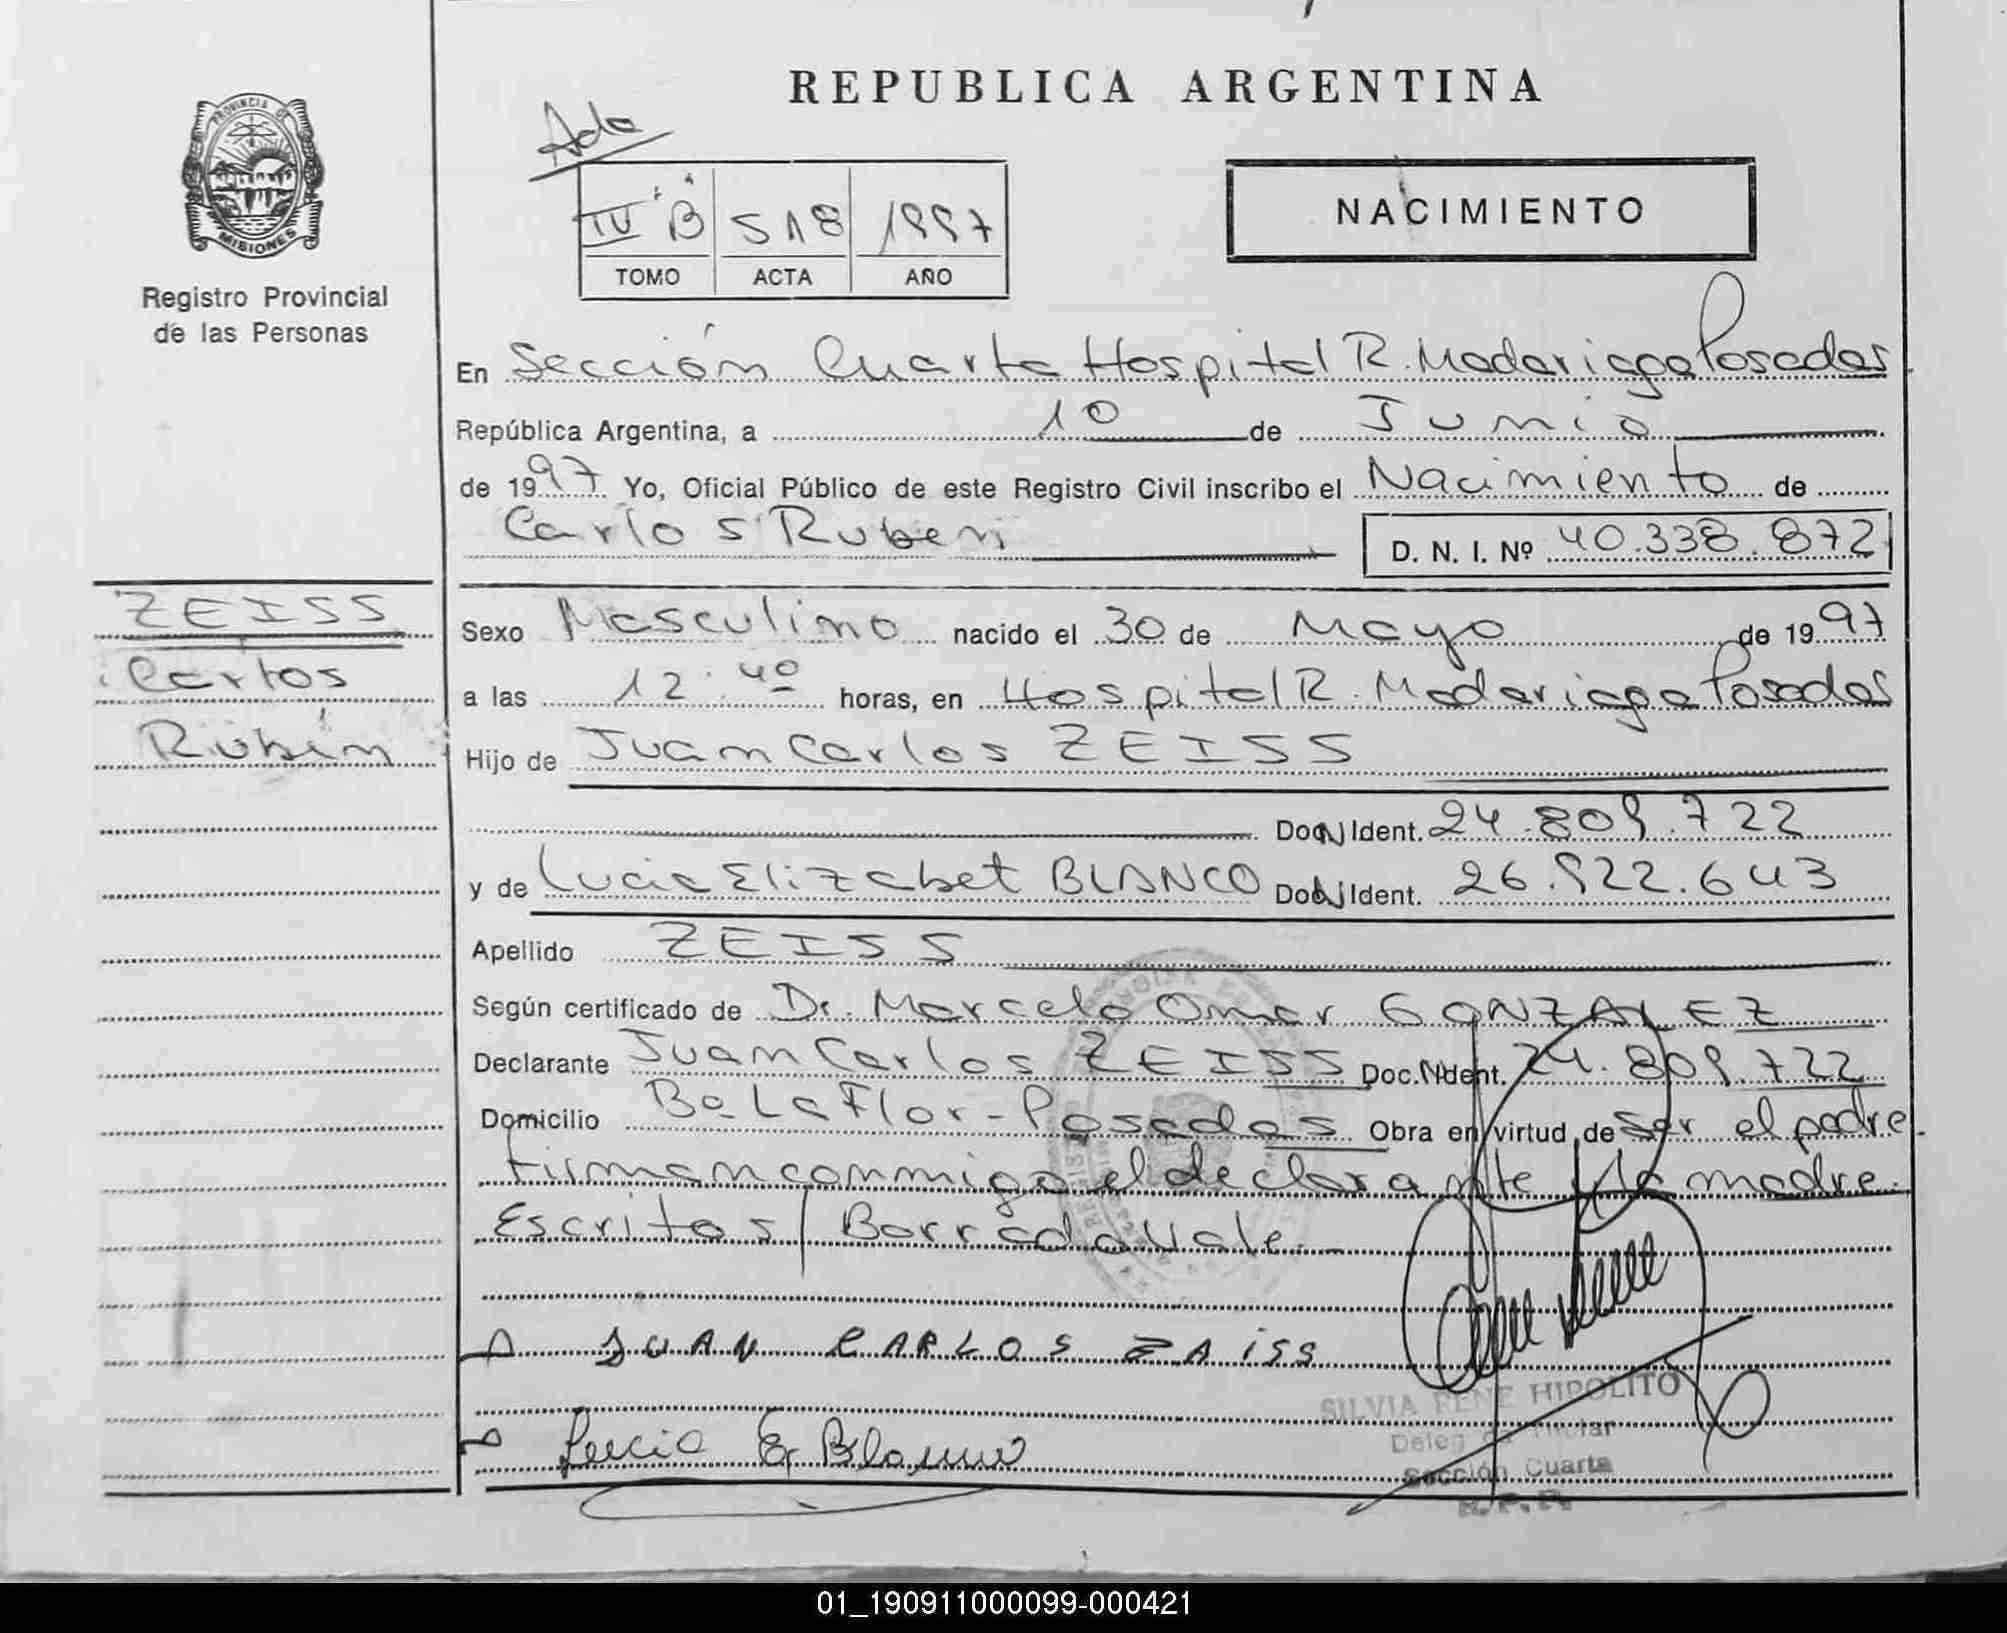 REPUBLICA ARGENTINA
PROVINCIA DE
MISIONES
Registro Provincial
de las Personas
Ada
IV B 518 1997
TOMO ACTA AÑO
NACIMIENTO
En Sección Cuarta Hospital R. Madariaga Posadas
República Argentina, a 10 de Junio
de 1997 Yo, Oficial Público de este Registro Civil inscribo el Nacimiento de
Carlos Ruben D. N. I. Nº 40.338.872
ZEISS
Carlos
Rubén
Sexo Masculino nacido el 30 de Mayo de 1997
a las 12:40 horas, en Hospital R. Madariaga Posadas
Hijo de Juan Carlos ZEISS
Doc. Ident. 24.809.722
y de Lucia Elizabet BLANCO Doc. Ident. 26.922.643
Apellido ZEISS
Según certificado de Dr. Marcelo Omar GONZALEZ
Declarante Juan Carlos ZEISS Doc. Ident. 24.809.722
Domicilio Bo La Flor - Posadas Obra en virtud de ser el padre
Firman conmigo el declarante y la madre.
Escritos/ Borrado Vale.
JUAN CARLOS ZAiSS
SILVIA RENE HIPOLITO
Titular
Sección Cuarta
R.P.P.
Lucia E. Blanco
01_190911000099-000421